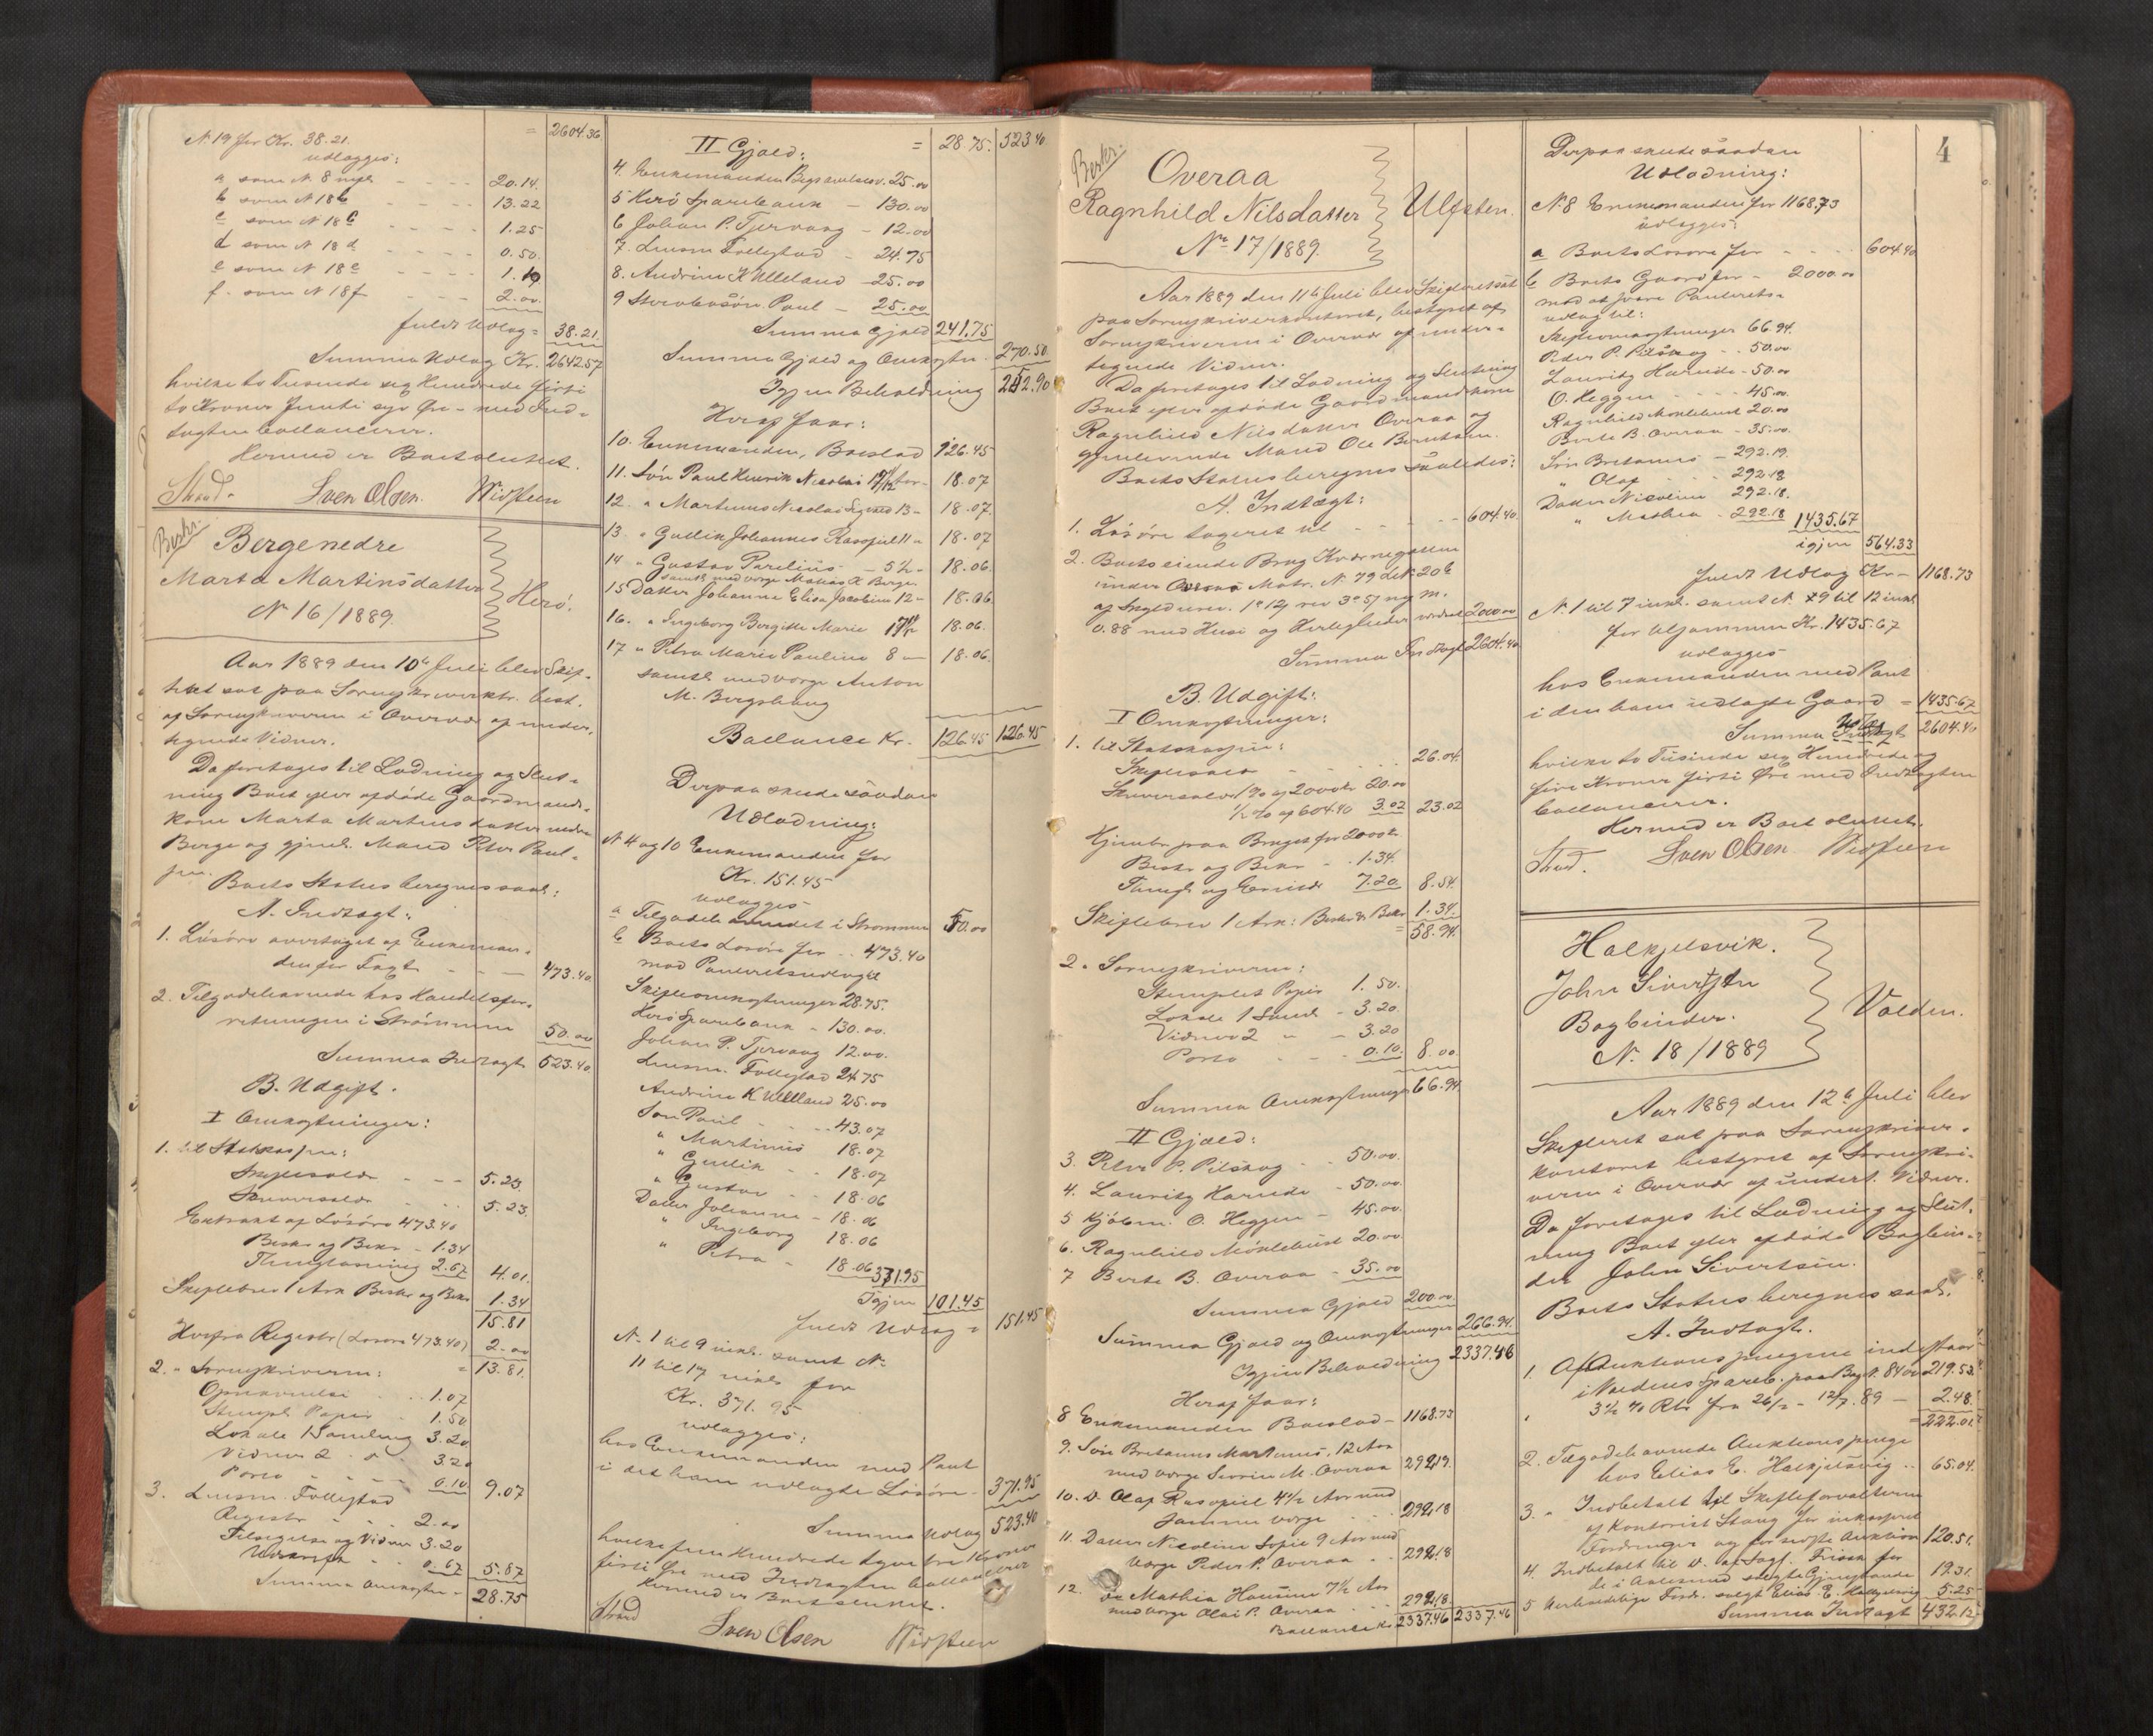 N. 19 for Kr. 38.21. = 2604.36
udlægges:
a som N. 8 - - - - 20.14.
b som N 18 b - - - - 13.22
c som N 18 c - - - - 1.25
d som N 18 d - - - - 0.50.
e som N 18 e - - - - 1.10
f. som N 18 f - - - 2.00.
fuldt Udlæg = 38.21.
Summa Udlæg Kr. 2642.57
hvilke to Tusinde sex Hundrede firti
to Kroner femti syv Øre - med Ind-
tægten ballancerer.
Hermed er Boet sluttet.
Strand. Sven Olsen.
Beskr.
Berge nedre
Marta Martinsdatter Herö.
No 16/1889.
Aar 1889 den 10de Juli blev Skif-
teret sat paa Sorenskriverktr. best.
af Sorenskriveren i Overvær af under-
tegnede Vidner.
Da foretages til Lodning og Slut-
ning Boet efter afdöde Gaardmands-
kone Marta Martinsdatter nedre
Berge og gjenl. Mand Peter Paul-
sen.
Boets Status beregnes saal:
A. Indtægt:
1. Lösöre overtaget af Enkeman-
den for Taxt - - - 473.40.
2. Tilgodehavende hos Handelsfor-
retningen i Strömmen 50.00
Summa Indtægt 523.40.
B. Udgift.
I Omkostninger:
1. til Statskassen:
Skifteafgift - - - 5.23.
Skriversalær 5.23.
Extrakt af Lösöre 473.40
Beskr og Bekr - 1.34
Thinglæsning 2.67 4.01.
Skiftebrev 1 Ark Beskr og Bekr 1.34
15.81
Herfra Registr (Lösöre 473.40) 2.00
2. " Sorenskriveren: = 13.81.
1.07
Stempl. Papir - 1.50
Lokale 1 Samling 3.20
Vidner 2 - " - 3.20
Porto - - - 0.10 9.07
3. Lensm. Folkestad
Registr - - 2.00
Tilsigelse og Vidner 3.20
Udskrift - - 0.67 5.87
Summa Omkostn - 28.75
II Gjæld: = 28.75. 523.40
4. Enkemanden 25.00
5 Herö Sparebank - 130.00
6 Johan P. Tjervaag - 12.00
7. Lensm Folkestad - 24.75
8. Andrine K Ulleland - 25.00
9 Paul - 25.00
Summa Gjæld 241.75
Summa Gjæld og Omkostn. 270.50
Igjen Beholdning 252.90
Heraf faar:
10. Enkemanden, Boeslod 126.45
11. Sön Paul Henrik Nicolai 18.07
12. " Martinus Nicolai 13 - 18.07.
13 " Gullik Johannes 11 " 18.07
14 " Gustav Parelius - 5½ - 18.06.
samtl. med værge Mathias K Berge.
15 Datter Johanne Elisa Jacobine 12 - 18.06
16. " Ingeborg Bergitte Marie 18.06.
17 " Petra Marie Pauline 8 - 18.06.
samtl med værge Anton
M. Bergshaug
Ballance Kr. 126.45 126.45
Derpaa skede saadan
Udlodning:
N 4 og 10 Enkemanden for
Kr. 151.45
udlægges -
a Tilgodehavendet i Strömmen 50.00
b Boets Lösöre for - - 473.40
mod Panteretsudlæg til
Skifteomkostninger 28.75.
Herö Sparebank - 130.00.
Johan P. Tjervaag 12.00.
Lensm. Folkestad 24.75
Andrine K Ulleland 25.00
Sön Paul - - - 43.07
" Martinus 18.07
" Gullik - - 18.07
" Gustav - - 18.06
Datter Johanne - 18.06
" Ingeborg 18.06
" Petra - 18.06 371.95
Igjen 101.45
fuldt Udlæg = 151.45
N. 1 til 9 inkl. samt No
11 til 17 inkl for
Kr. 371.95
udlægges:
hos Enkemanden med Pant
i det ham udlagte Lösöre - 371.95
Summa Udlæg 523.40
hvilke fem Hundrede tyve tre Kroner
firti Øre med Indtægten ballancerer
Hermed er Boet sluttet.
Strand Sven Olsen
Beskr.
Overaa
Ragnhild Nilsdatter Ulfsten.
No 17/1889.
Aar 1889 den 11te Juli blev Skifteret sat
paa Sorenskriverkontoret, bestyret af
Sorenskriveren i Overvær af under-
tegnede Vidner.
Da foretages til Lodning og Slutning
Boet efter afdöde Gaardmandskone
Ragnhild Nilsdatter Overaa og
gjenlevende Mand Ole Berntsen.
Boets Status beregnes saaledes:
A. Indtægt:
1. Lösöre taxeret til - - - - 604.40.
2. Boets eiende Brug
under Overaa Matr. N. 79 b
ny M.
0.88 med Huse og Herligheder 2000.00
Summa Indtægt 2604.40
B. Udgift:
I Omkostninger:
1. til Statskassen:
Skifteafgift - - - 26.04.
Skriversalær 1% af 2000 Kr 20.00
½% af 604.40 3.02 23.02
Hjemler paa Bruget for 2000 Kr.
Beskr og Bekr - - 1.34.
7.20 8.54.
Skiftebrev 1 Ark: Beskr & Bekr 1.34.
= 58.94.
2. Sorenskriveren:
Stemplet Papir 1.50.
Lokale 1 Saml - 3.20.
Vidner 2 " - 3.20
Porto - - - 0.10. 8.00.
Summa Omkostninger 66.94.
II Gjæld:
3. Peter P. Pilskog - - 50.00.
4. Lauritz Hareide - 50.00.
5 Kjöbm. O. Heggen - 45.00.
6. Ragnhild Möklebust 20.00
7 Berte B. Overaa - 35.00
Summa Gjæld 200.00.
Summa Gjæld og Omkostninger 266.94.
Igjen Beholdning 2337.46
Heraf faar:
8 Enkemanden Boeslod - 1168.73
9. Sön Bretanus Martinus, 12 Aar
med værge Severin M. Overaa 292.19.
10. D. Olaf 4½ Aar med
samme værge - - - 292.18
11. Datter Nicoline Sofie 9 Aar med
værge Peder P. Overaa - - 292.18
12. Do Mathea Hansine 7½ Aar
med værge Olai P. Overaa - - 292.18.
Ballance Kr 2337.46 2337.46
4
Derpaa skede saadan
Udlodning:
N. 8 Enkemanden for 1168.73
udlægges:
a Boets Lösöre for - - - 604.40
b Boets Gaard for - 2000.00
mod at svare Panterets-
udlæg til:
Skifteomkostninger 66.94.
Peder P. Pilskog - - 50.00.
Lauritz Hareide - 50.00
O. Heggen - - - 45.00
Ragnhild Möklebust 20.00
Berte B. Overaa - 35.00.
Sön Bretanus - 292.19.
" Olaf - - 292.18
Datter Nicoline 292.18.
" Mathea - 292.18 1435.67
igjen 564.33
fuldt Udlæg Kr - 1168.73
N. 1 til 7 inkl. samt N. 9 til 12 inkl
for tilsammen Kr. 1435.67
udlægges
hos Enkemanden med Pant
i den ham udlagte Gaard = 1435.67
Summa Udlæg 2604.40
hvilke to Tusinde sex Hundrede og
fire Kroner firti Øre med Indtægten
ballancerer.
Hermed er Boet sluttet.
Strand. Sven Olsen
Halkjelsvik.
John Sivertsen
Bogbinder. Volden.
N. 18/1889
Aar 1889 den 12te Juli blev
Skifteret sat paa Sorenskriver-
kontoret bestyret af Sorenskri-
veren i Overvær af undert. Vidner.
Da foretages til Lodning og Slut-
ning Boet efter afdöde Bogbin-
der John Sivertsen.
Boets Status beregnes saal.
A. Indtægt.
1. Af Auktionspengene indestaar
i Voldens Spareb. paa Bog N. 840 219.53.
3½ % Rtr fra 26/2 - 12/7.89 - 2.48.
= 222.01.
2. Tilgodehavende Auktionspenge
hos Elias E. Halkjelsvig - - 65.04.
3. " Indbetalt til Skifteforvalteren
af Kontorist Stang for inkasserede
Fordringer og for sidste Auktion 120.51.
4. Indbetalt til D. af Sagf. Frisak for
de i Aalesund solgte Gjenstande 19.31.
5 Uerholdelige Fordr. solgt Elias E. Halkjelsvig 5.25
Summa Indtægt 432.12